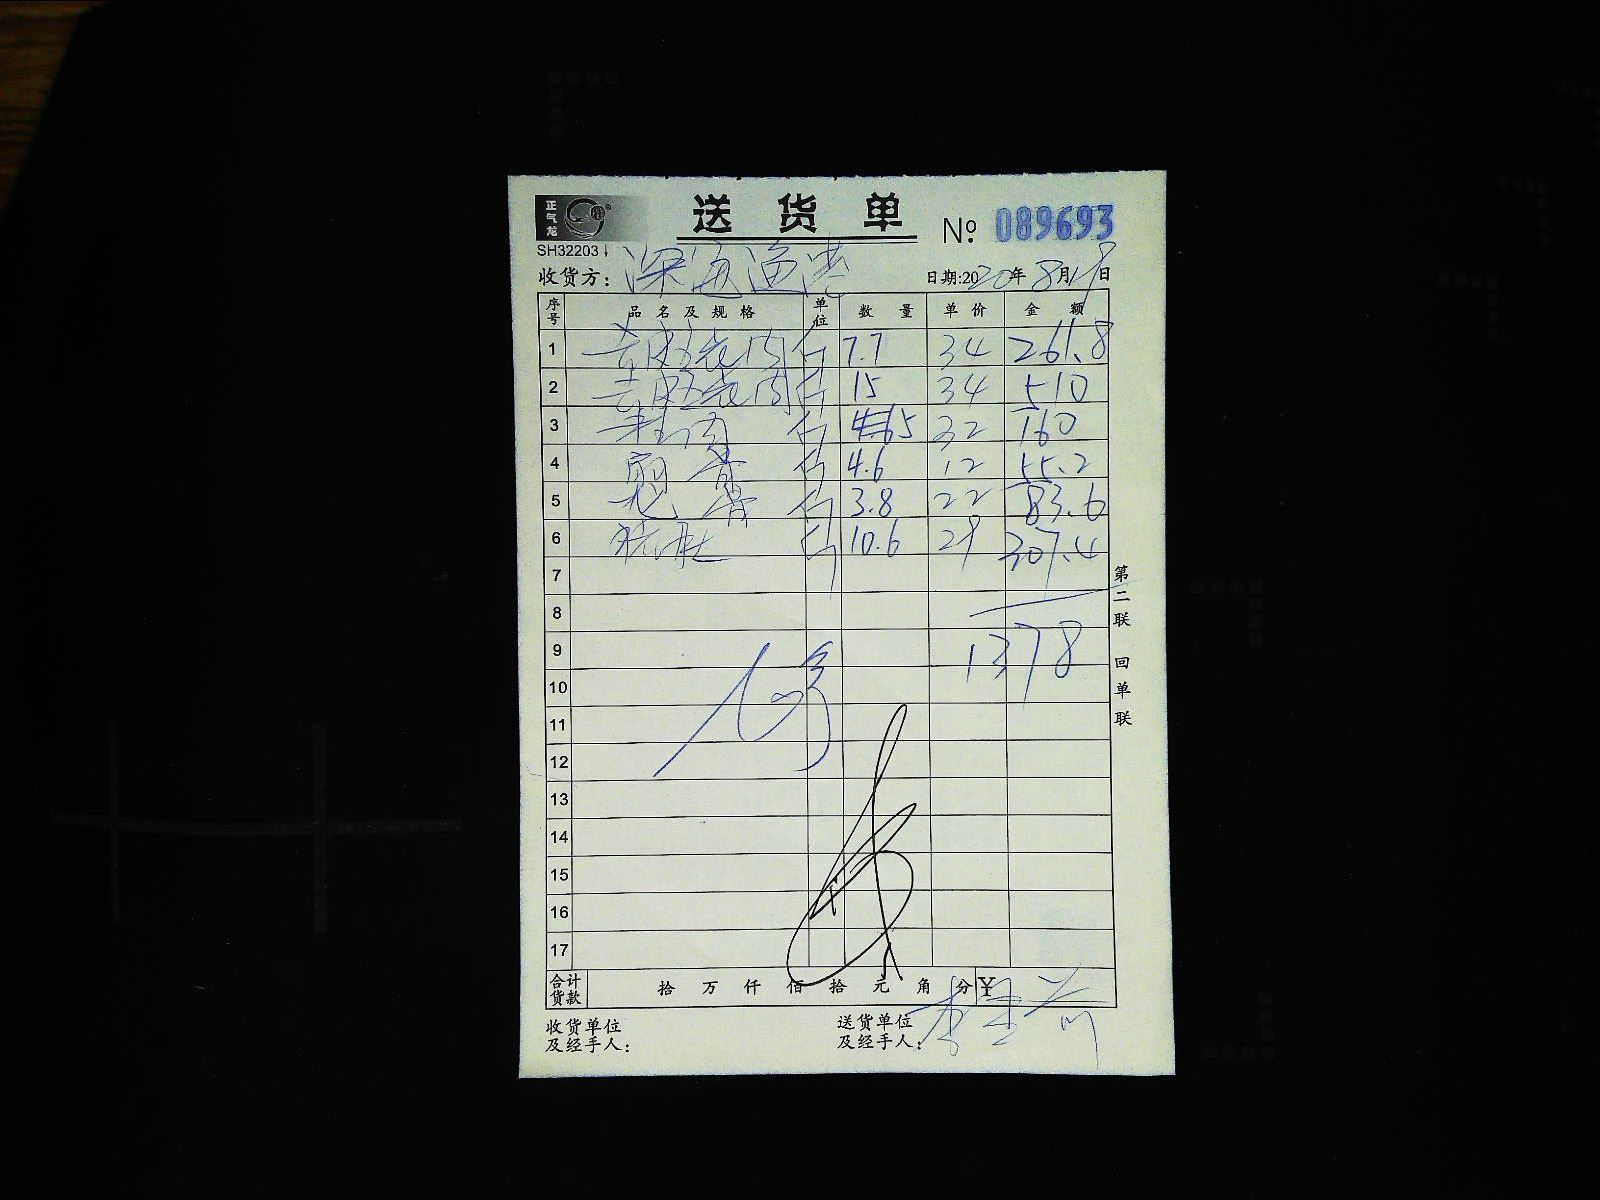 正气龙
送货单 № 089693
SH32203
收货方：深海渔港 日期:2020年8月18日
序号 品名及规格 单位 数量 单价 金额
1 去皮五花肉 斤 7.7 34 261.8
2 去皮五花肉 斤 15 34 510
3 斤 5 32 160
4 斤 4.6 12 55.2
5 骨 斤 3.8 22 83.6
6 斤 10.6 29 307.4
7
8
9 1378
10
11
12
13
14
15
16
17
合计货款 拾万仟佰拾元角分 ¥
收货单位及经手人： 送货单位及经手人：
第二联 回单联